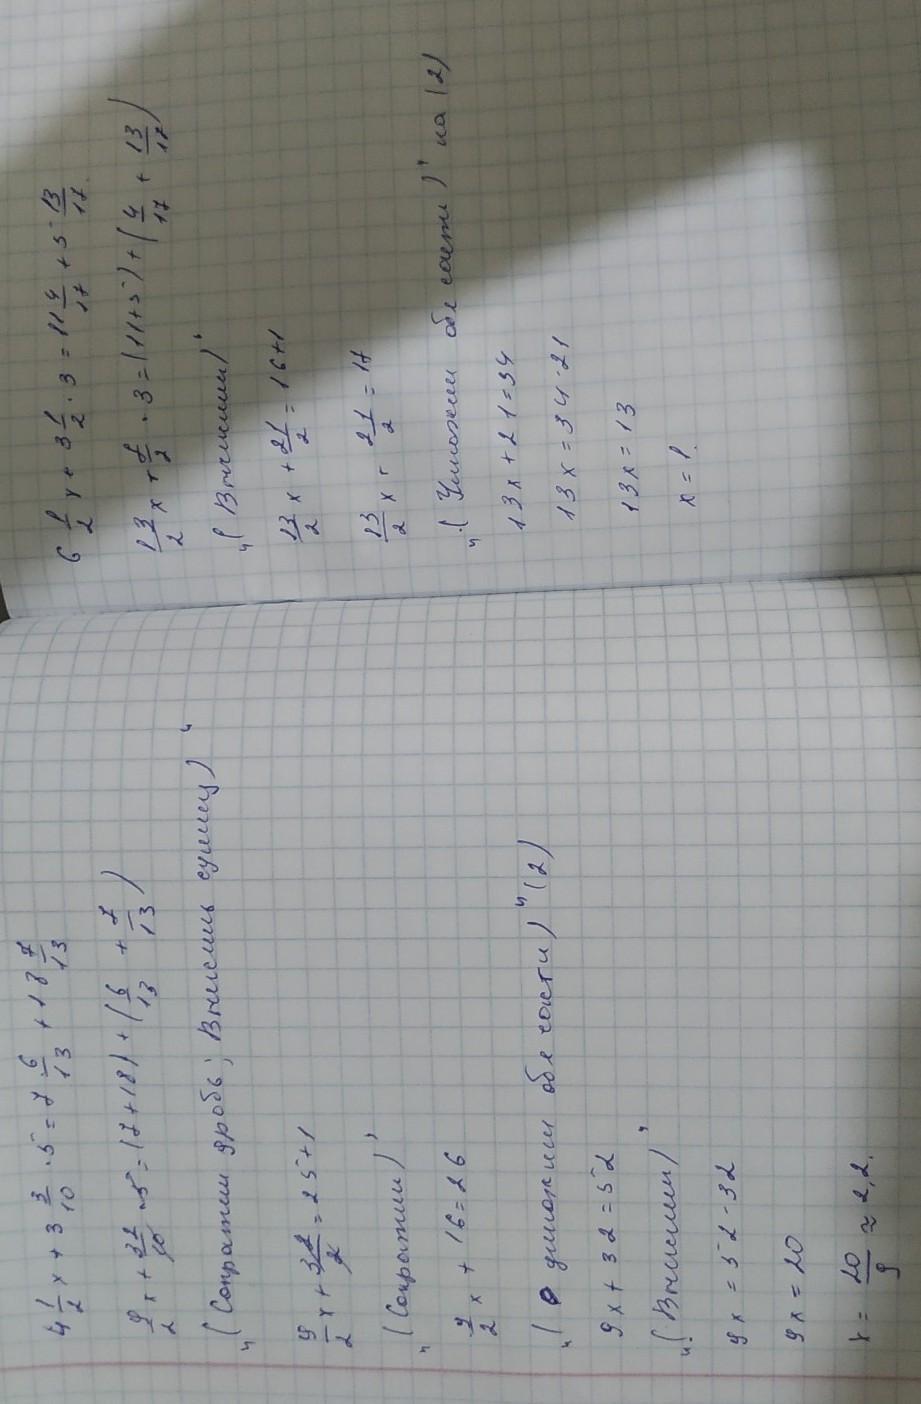 4 1/2 x + 3 2/10 · 5 = 7 6/13 + 18 7/13
9/2 x + 32/10 · 5 = (7+18) + (6/13 + 7/13)
"(Сократим дробь; Вычислить сумму)"
9/2 x + 32/2 = 25+1
"(Сократим)"
9/2 x + 16 = 26
"( умножим обе части)" (2)
9x + 32 = 52
"(Вычислим)"
9x = 52-32
9x = 20
x = 20/9 ≈ 2,2.
6 1/2 x + 3 1/2 · 3 = 11 4/17 + 5 13/17.
13/2 x + 7/2 · 3 = (11+5) + (4/17 + 13/17)
"(Вычислим)"
13/2 x + 21/2 = 16+1
13/2 x + 21/2 = 17
"(Умножим обе части)" на (2)
13x + 21 = 34
13x = 34-21
13x = 13
x = 1.